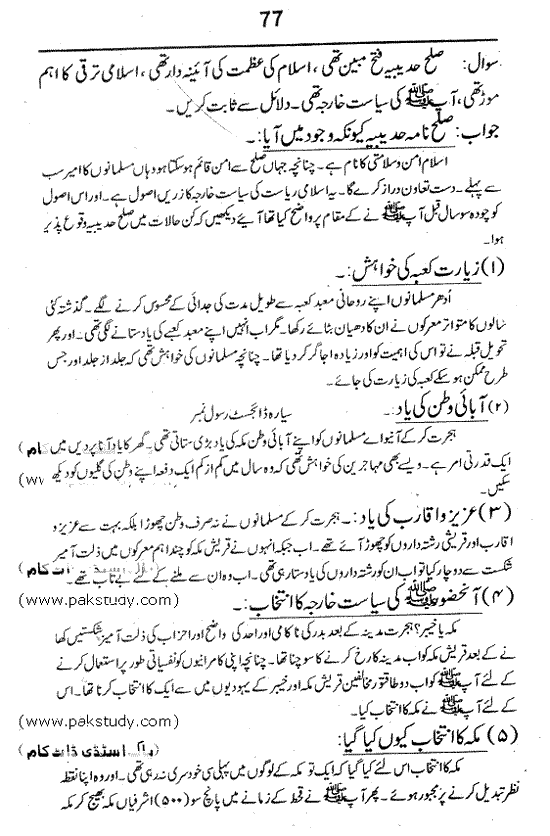 77
سوال: صلح حدیبیہ فتح مبین تھی، اسلام کی عظمت کی آئینہ دار تھی، اسلامی ترقی کا اہم
موڑ تھی، آپ ﷺ کی سیاست خارجہ تھی۔ دلائل سے ثابت کریں۔
جواب: صلح نامہ حدیبیہ کیونکہ وجود میں آیا:۔
اسلام امن و سلامتی کا نام ہے۔ چنانچہ جہاں صلح سے امن قائم ہو سکتا ہو وہاں مسلمانوں کا امیر سب
سے پہلے۔ دست تعاون دراز کرے گا۔ یہ اسلامی ریاست کی سیاست خارجہ کا زریں اصول ہے۔ اور اس اصول
کو چودہ سو سال قبل آپ ﷺ نے کے مقام پر واضح کیا تھا آیئے دیکھیں کہ کن حالات میں صلح حدیبیہ وقوع پذیر
ہوا۔
(۱) زیارت کعبہ کی خواہش:۔
اُدھر مسلمانوں اپنے روحانی معبد کعبہ سے طویل مدت کی جدائی کے محسوس کرنے لگے۔ گذشتہ کئی
سالوں کا متواتر معرکوں نے ان کا دھیان بٹائے رکھا۔ مگر اب انہیں اپنے معبد کعبے کی یاد ستانے لگی تھی۔ اور پھر
تحویل قبلہ نے تو اس کی اہمیت کو اور زیادہ اجاگر کر دیا تھا۔ چنانچہ مسلمانوں کی خواہش تھی کہ جلد از جلد اور جس
طرح ممکن ہو سکے کعبہ کی زیارت کی جائے۔
(۲) آبائی وطن کی یاد:۔ سیارہ ڈائجسٹ رسول نمبر
ہجرت کر کے آنیوالے مسلمانوں کو اپنے آبائی وطن مکہ کی یاد بڑی ستاتی تھی۔ گھر کا یاد آنا پردیس میں
ایک قدرتی امر ہے۔ ویسے بھی مہاجرین کی خواہش تھی کہ وہ سال میں کم از کم ایک دفعہ اپنے وطن کی گلیوں کو دیکھ
سکیں۔
(۳) عزیز و اقارب کی یاد:۔ ہجرت کر کے مسلمانوں نے نہ صرف وطن چھوڑا بلکہ بہت سے عزیز و
اقارب اور قریشی رشتہ داروں کو چھوڑ آئے تھے۔ اب جبکہ انہوں نے قریش مکہ کو چند اہم معرکوں میں ذلت آمیز
شکست سے دوچار کیا تو اب ان کو رشتہ داروں کی یاد ستا رہی تھی۔ اب وہ ان سے ملنے کے لئے بے تاب تھے۔
(۴) آنحضور ﷺ کی سیاست خارجہ کا انتخاب:۔
(www.pakstudy.com)
مکہ یا خیبر؟ ہجرت مدینہ کے بعد بدر کی ناکامی اور احد کی واضح اور احزاب کی ذلت آمیز شکستیں کھا
نے کے بعد قریش مکہ کو اب مدینہ کا رخ کرنے کا سوچنا تھا۔ چنانچہ اپنی کامرانیوں کو نفسیاتی طور پر استعمال کرنے
کے لئے آپ ﷺ کو اب دو طاقتور مخالفین قریش مکہ اور خیبر کے یہودیوں میں سے ایک کا انتخاب کرنا تھا۔ اس
کے لئے آپ ﷺ نے مکہ کا انتخاب کیا۔
(www.pakstudy.com)
(۵) مکہ کا انتخاب کیوں کیا گیا:۔
(پاک اسٹڈی ڈاٹ کام)
مکہ کا انتخاب اس لئے کیا گیا کہ ایک تو مکہ کے لوگوں میں پہلی سی خود سری نہ رہی تھی۔ اور وہ اپنا نقطہ
نظر تبدیل کرنے پر مجبور ہوئے۔ پھر آپ ﷺ نے قحط کے زمانے میں پانچ سو (۵۰۰) اشرفیاں مکہ بھیج کر مکہ